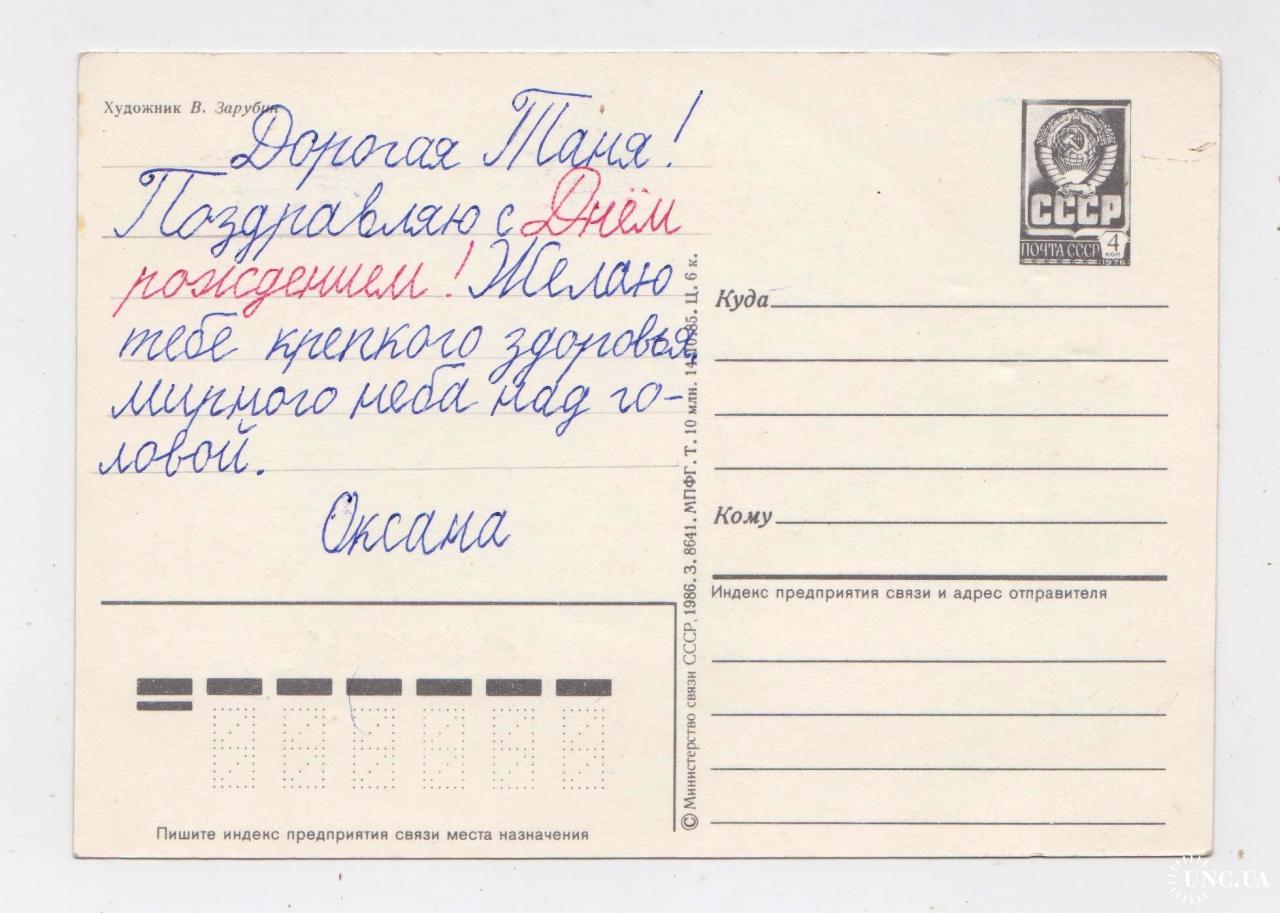 Художник В. Зарубин
Дорогая Таня!
Поздравляю с Днём
рождением! Желаю
тебе крепкого здоровья,
мирного неба над го-
ловой.
Оксана
Пишите индекс предприятия связи места назначения
© Министерство связи СССР, 1986. З. 8641. МПФГ. Т. 10 млн. 14.10.85. Ц. 6 к.
СССР
ПОЧТА СССР 4 КОП
1976
Куда
Кому
Индекс предприятия связи и адрес отправителя
UNC.UA